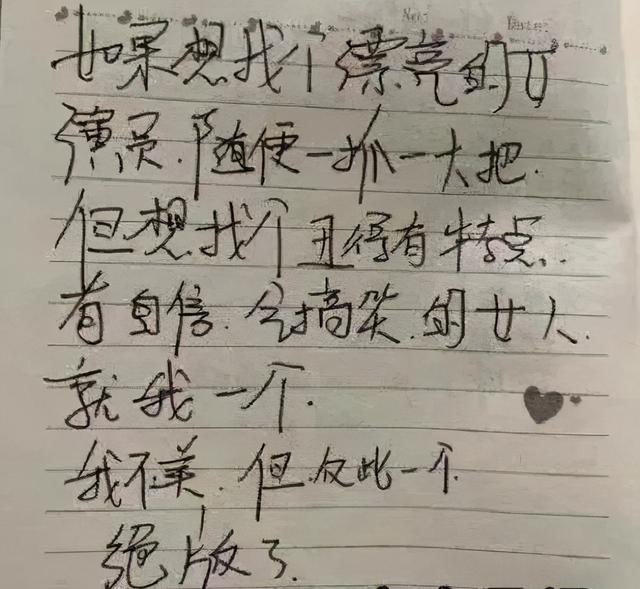 如果想找个漂亮的女
演员.随便一抓一大把.
但想找个丑得有特点..
有自信.会搞笑.的女人.
就我一个.
我不美.但.仅此一个.
绝版了.